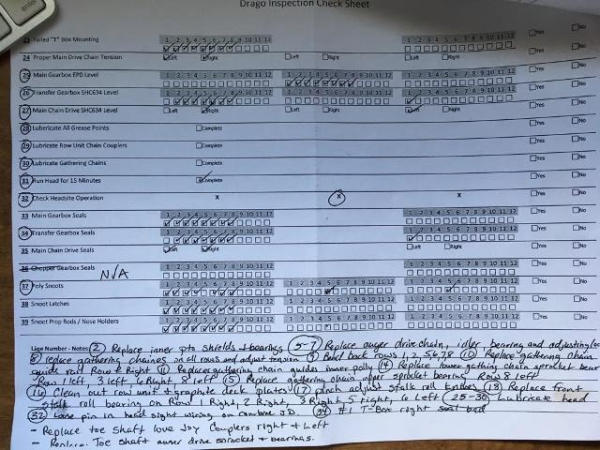 Drago Inspection Check Sheet
23 Failed "T" Box Mounting 1 2 3 4 5 6 7 8 9 10 11 12 1 2 3 4 5 6 7 8 9 10 11 12 Yes No
24 Proper Main Drive Chain Tension Left Right Left Right Left Right Yes No
25 Main Gearbox EP0 Level 1 2 3 4 5 6 7 8 9 10 11 12 1 2 3 4 5 6 7 8 9 10 11 12 1 2 3 4 5 6 7 8 9 10 11 12 Yes No
26 Transfer Gearbox SHC634 Level 1 2 3 4 5 6 7 8 9 10 11 12 1 2 3 4 5 6 7 8 9 10 11 12 Yes No
27 Main Chain Drive SHC634 Level Left Right Left Right Left Right Yes No
28 Lubricate All Grease Points Complete Yes No
29 Lubricate Row Unit Chain Couplers Complete Yes No
30 Lubricate Gathering Chains Complete Yes No
31 Run Head for 15 Minutes Complete Yes No
32 Check Headsite Operation X X X Yes No
33 Main Gearbox Seals 1 2 3 4 5 6 7 8 9 10 11 12 1 2 3 4 5 6 7 8 9 10 11 12 Yes No
34 Transfer Gearbox Seals 1 2 3 4 5 6 7 8 9 10 11 12 1 2 3 4 5 6 7 8 9 10 11 12 Yes No
35 Main Chain Drive Seals Left Right Left Right Yes No
36 Chopper Gearbox Seals N/A 1 2 3 4 5 6 7 8 9 10 11 12 1 2 3 4 5 6 7 8 9 10 11 12 Yes No
37 Poly Snouts 1 2 3 4 5 6 7 8 9 10 11 12 1 2 3 4 5 6 7 8 9 10 11 12 1 2 3 4 5 6 7 8 9 10 11 12 Yes No
38 Snoot Latches 1 2 3 4 5 6 7 8 9 10 11 12 1 2 3 4 5 6 7 8 9 10 11 12 Yes No
39 Snoot Prop Rods / Nose Holders 1 2 3 4 5 6 7 8 9 10 11 12 1 2 3 4 5 6 7 8 9 10 11 12 Yes No
Line Number - Notes: 2 Replace inner pto shields + bearings 5-7 Replace auger drive chain, idler bearing and adjusting
8 replace gathering chaines on all rows and adjust tension 9 Bolt back rows 1, 2, 5, 6, 7, 8 10 Replace gathering chain
guide roll Row 4 Right 11 Replace gathering chain guides inner poly 14 Replace lower gathing chain sprocket bear
Row 1 left, 3 left, 6 Right, 8 left 15 Replace gathering chain upper sprocket bearing Row 8 left
16 Clean out row unit + graphite deck plates 17 pinch adjust stalk roll knives 18 Replace front
stalk roll bearing on Row 1 Right, 2 Right, 3 Right 5 right, 6 Left 25-30 Lubricate head
32 Loose pin in head sight wiring on combine JD. 34 #1 T-Box right seal bad
- Replace toe shaft love Joy Couplers right + Left
- Replace Toe shaft auger drive sprocket + bearings.